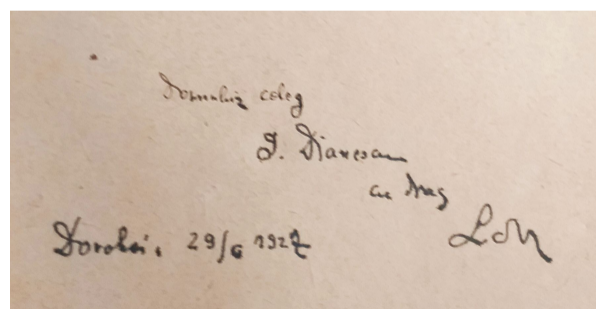 Domnului coleg
D. Dianescu
cu drag
LM
Dorohoi. 29/6 1927